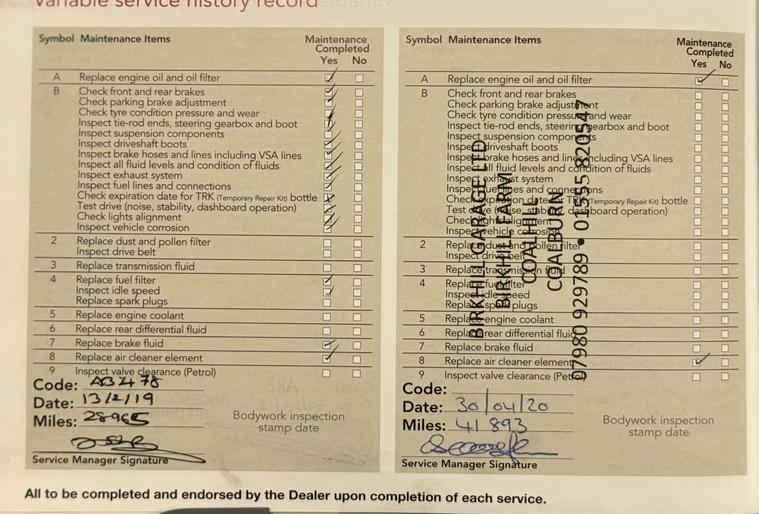 Variable service history record
Symbol Maintenance Items Maintenance Completed Yes No
A Replace engine oil and oil filter
B Check front and rear brakes
Check parking brake adjustment
Check tyre condition pressure and wear
Inspect tie-rod ends, steering gearbox and boot
Inspect suspension components
Inspect driveshaft boots
Inspect brake hoses and lines including VSA lines
Inspect all fluid levels and condition of fluids
Inspect exhaust system
Inspect fuel lines and connections
Check expiration date for TRK (Temporary Repair Kit) bottle
Test drive (noise, stability, dashboard operation)
Check lights alignment
Inspect vehicle corrosion
2 Replace dust and pollen filter
Inspect drive belt
3 Replace transmission fluid
4 Replace fuel filter
Inspect idle speed
Replace spark plugs
5 Replace engine coolant
6 Replace rear differential fluid
7 Replace brake fluid
8 Replace air cleaner element
9 Inspect valve clearance (Petrol)
Code: AB3478
Date: 13/2/19
Miles: 28965
Bodywork inspection
stamp date
Service Manager Signature
Symbol Maintenance Items Maintenance Completed Yes No
A Replace engine oil and oil filter
B Check front and rear brakes
Check parking brake adjustment
Check tyre condition pressure and wear
Inspect tie-rod ends, steering gearbox and boot
Inspect suspension components
Inspect driveshaft boots
Inspect brake hoses and lines including VSA lines
Inspect all fluid levels and condition of fluids
Inspect exhaust system
Inspect fuel lines and connections
Check expiration date for TRK (Temporary Repair Kit) bottle
Test drive (noise, stability, dashboard operation)
Check lights alignment
Inspect vehicle corrosion
2 Replace dust and pollen filter
Inspect drive belt
3 Replace transmission fluid
4 Replace fuel filter
Inspect idle speed
Replace spark plugs
5 Replace engine coolant
6 Replace rear differential fluid
7 Replace brake fluid
8 Replace air cleaner element
9 Inspect valve clearance (Petrol)
BIRKHILL GARAGE LTD
BIRKHILL FARM
COALHILL
COALBURN
07980 929789 • 01555 820547
Code:
Date: 30/04/20
Miles: 41893
Bodywork inspection
stamp date
Service Manager Signature
All to be completed and endorsed by the Dealer upon completion of each service.